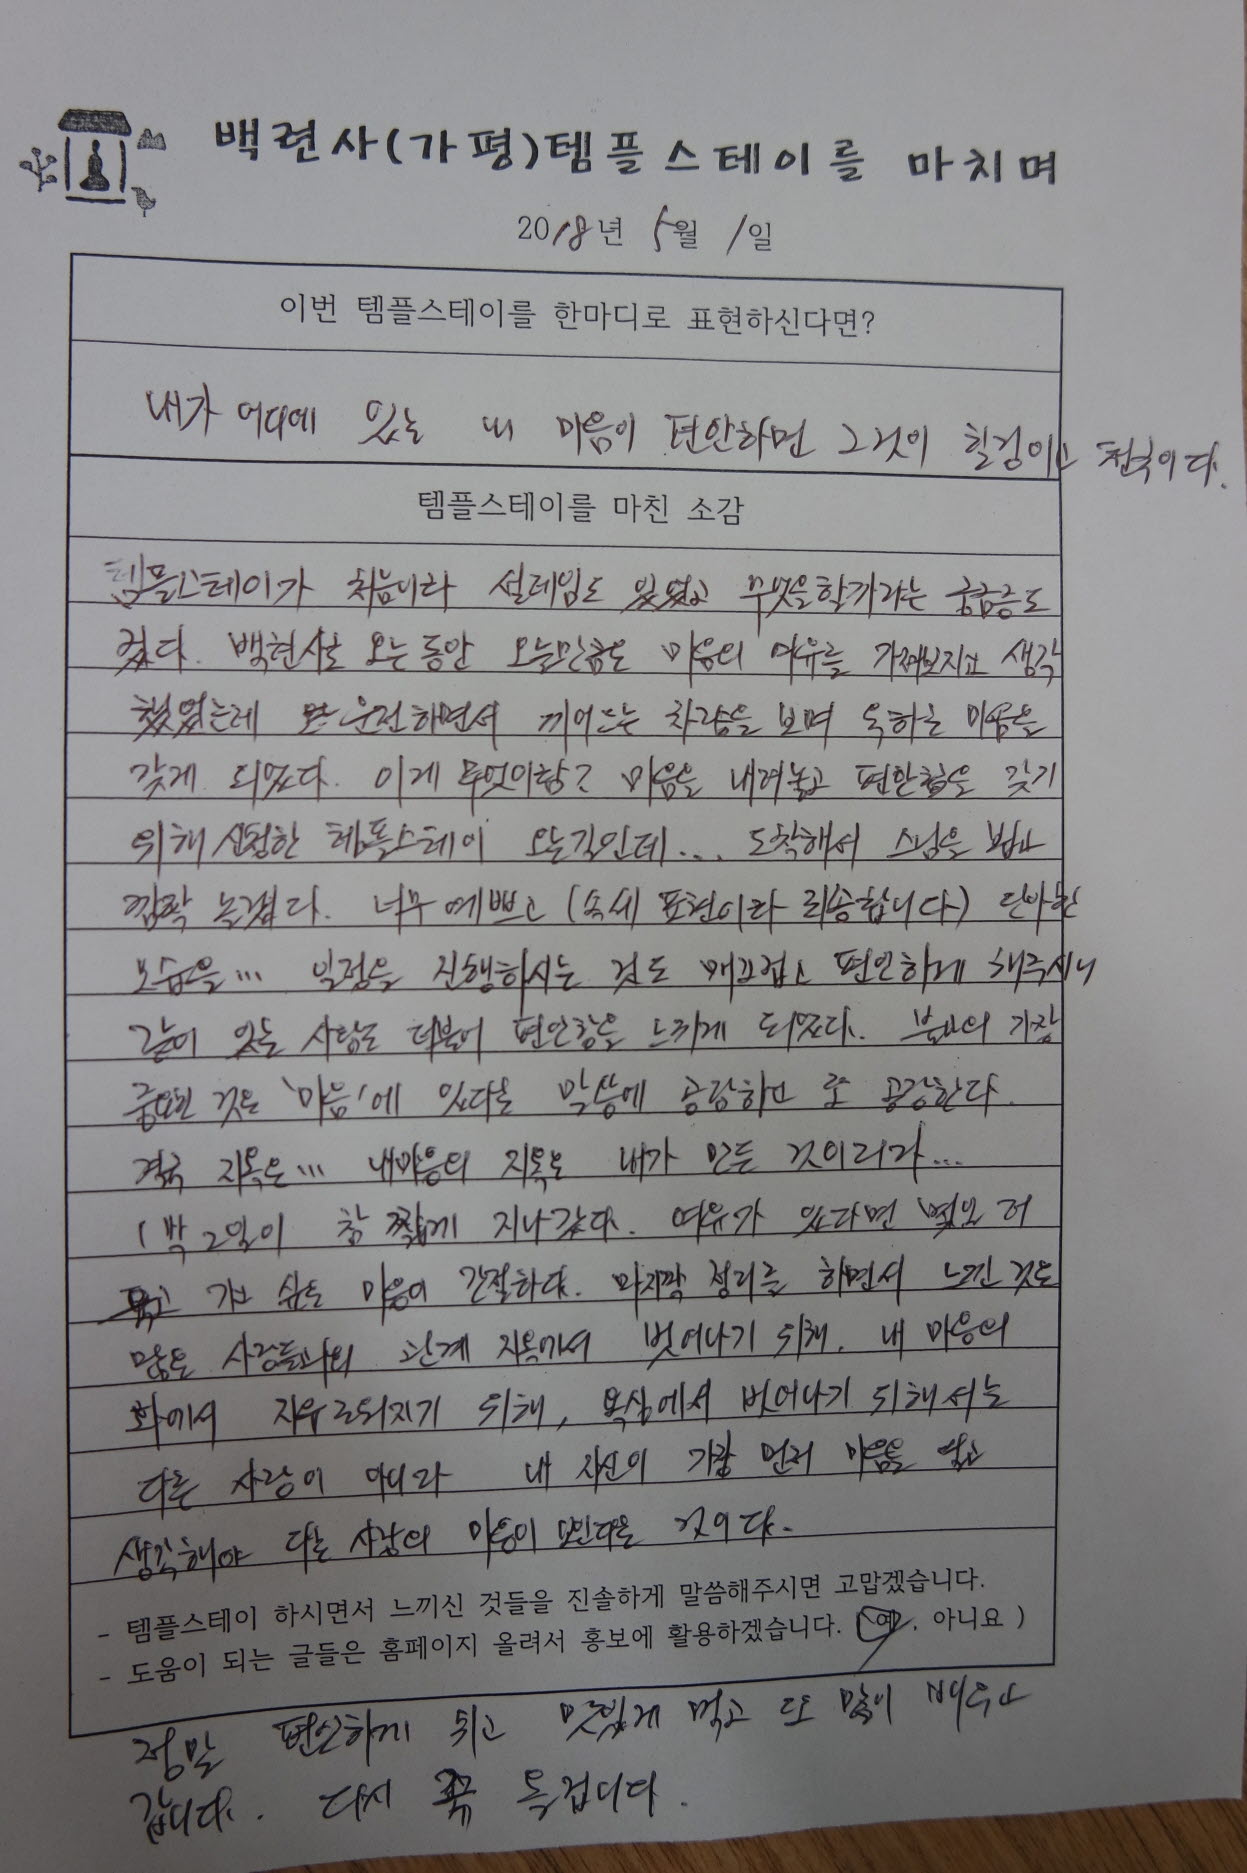 백련사(가평)템플스테이를 마치며
2018년 5월 1일
이번 템플스테이를 한마디로 표현하신다면?
내가 어디에 있는 내 마음이 편안하면 그것이 힐링이고 천국이다.
템플스테이를 마친 소감
템플스테이가 처음이라 설레임도 있었고 무엇을할까라는 궁금증도
컸다. 백현사로 오는동안 오늘만큼은 마음의 여유를 가져보자고 생각
했었는데 운전하면서 끼어드는 차량을 보며 욱하는 마음을
갖게 되었다. 이게 무엇이람? 마음을 내려놓고 편안함을 갖기
위해 신청한 템플스테이 오는길인데... 도착해서 스님을 뵙고
깜짝 놀랬다. 너무 예쁘고 (속세 표현이라 죄송합니다) 단아한
모습을... 일정을 진행하시는 것도 매끄럽고 편안하게 해주시니
같이 있는 사람도 더불어 편안함을 느끼게 되었다. 불교의 가장
중요한 것은 '마음'에 있다는 말씀에 공감하고 또 공감한다.
결국 지옥은... 내마음의 지옥은 내가 만든 것이리라...
1박 2일이 참 짧게 지나갔다. 여유가 있다면 몇일 더
묵고 가고 싶은 마음이 간절하다. 마지막 정리를 하면서 느낀 것은
많은 사람들과의 관계 지옥에서 벗어나기 위해, 내 마음의
화에서 자유로워지기 위해, 욕심에서 벗어나기 위해서는
다른 사람이 아니라 내 자신이 가장 먼저 마음을 열고
생각해야 다른 사람의 마음이 보인다는 것이다.
- 템플스테이 하시면서 느끼신 것들을 진솔하게 말씀해주시면 고맙겠습니다.
- 도움이 되는 글들은 홈페이지 올려서 홍보에 활용하겠습니다. (예, 아니요)
정말 편안하게 쉬고 맛있게 먹고 또 많이 배우고
갑니다. 다시 꼭 옵니다.